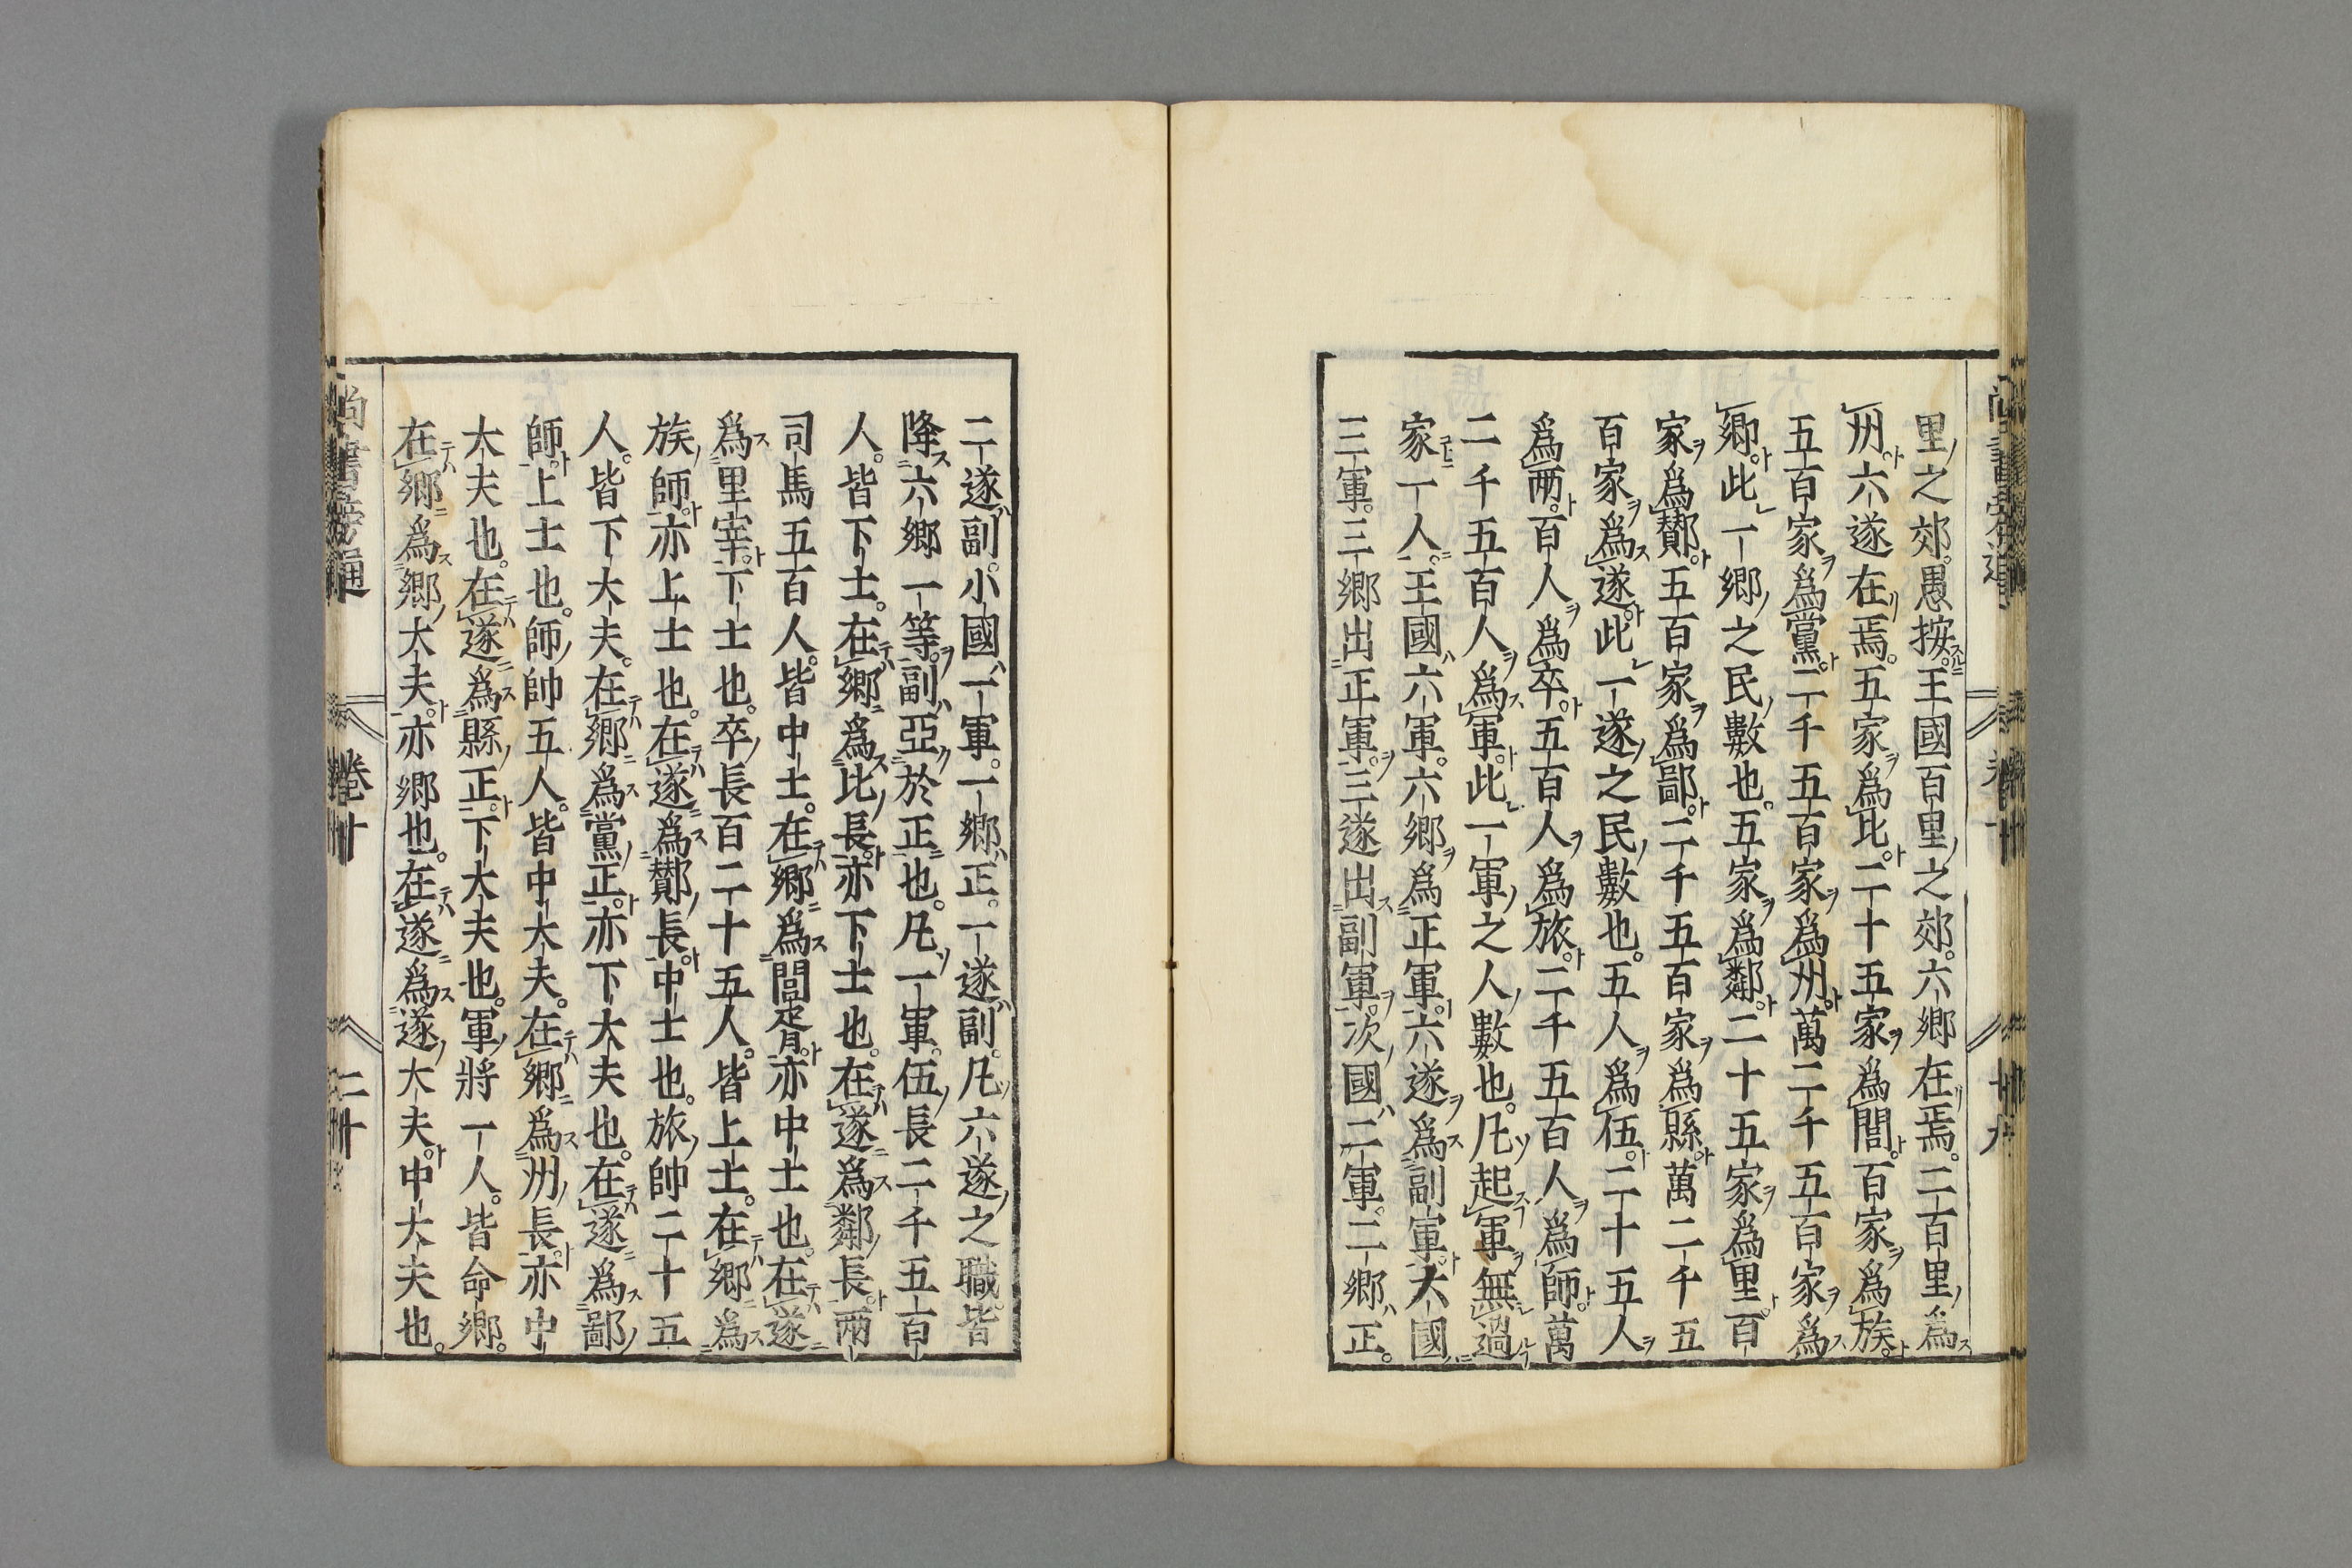 里之郊愚按王國百里之郊六鄉在焉二百里爲
州六遂在焉五家爲比二十五家爲閭百家爲族
五百家爲黨二千五百家爲州萬二千五百家爲
鄉此一鄉之民數也五家爲鄰二十五家爲里百
家爲酇五百家爲鄙二千五百家爲縣萬二千五
百家爲遂此一遂之民數也五人爲伍二十五人
爲兩百人爲卒五百人爲旅二千五百人爲師萬
二千五百人爲軍此一軍之人數也凡起軍無過
家一人王國六軍六鄉爲正軍六遂爲副軍大國
三軍三鄉出正軍三遂出副軍次國二軍二鄉正
二遂副小國一軍一鄉正一遂副凡六遂之職皆
降六鄉一等副亞於正也凡一軍伍長二千五百
人皆下士在鄉爲比長亦下士也在遂爲鄰長兩
司馬五百人皆中士在鄉爲閭胥亦中士也在遂
爲里宰下士也卒長百二十五人皆上士在鄉爲
族師亦上士也在遂爲酇長中士也旅帥二十五
人皆下大夫在鄉爲黨正亦下大夫也在遂爲鄙
師上士也師帥五人皆中大夫在鄉爲州長亦中
大夫也在遂爲縣正下大夫也軍將一人皆命鄉
在鄉爲鄉大夫亦鄉也在遂爲遂大夫中大夫也
尚書旁通 卷十 二十